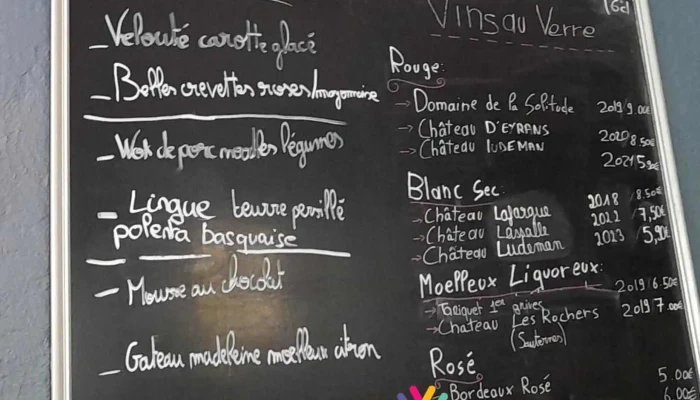 _ Velouté carotte glacé
_ Belles crevettes roses/mayonnaise
_ Wok de porc nouilles légumes
- Lingue beurre persillé
polenta basquaise
- Mousse au chocolat
_ Gateau madeleine moelleux citron
Vins au Verre
Rouge:
→ Domaine de la Solitude 2019/9.00€
→ Château D'EYRANS 2020/8.50€
→ Château LUDEMAN 2021/5,90€
Blanc Sec:
→ Château Lafargue 2018/8.50€
→ Château Lassalle 2022/7,50€
→ Château Ludeman 2023/5,90€
Moelleux Liquoreux:
→ Tariquet 1ères grives 2019/6.50€
→ Château Les Rochers 2019/7.00€
(Sauternes)
Rosé
Bordeaux Rosé 5.00€
6.00€